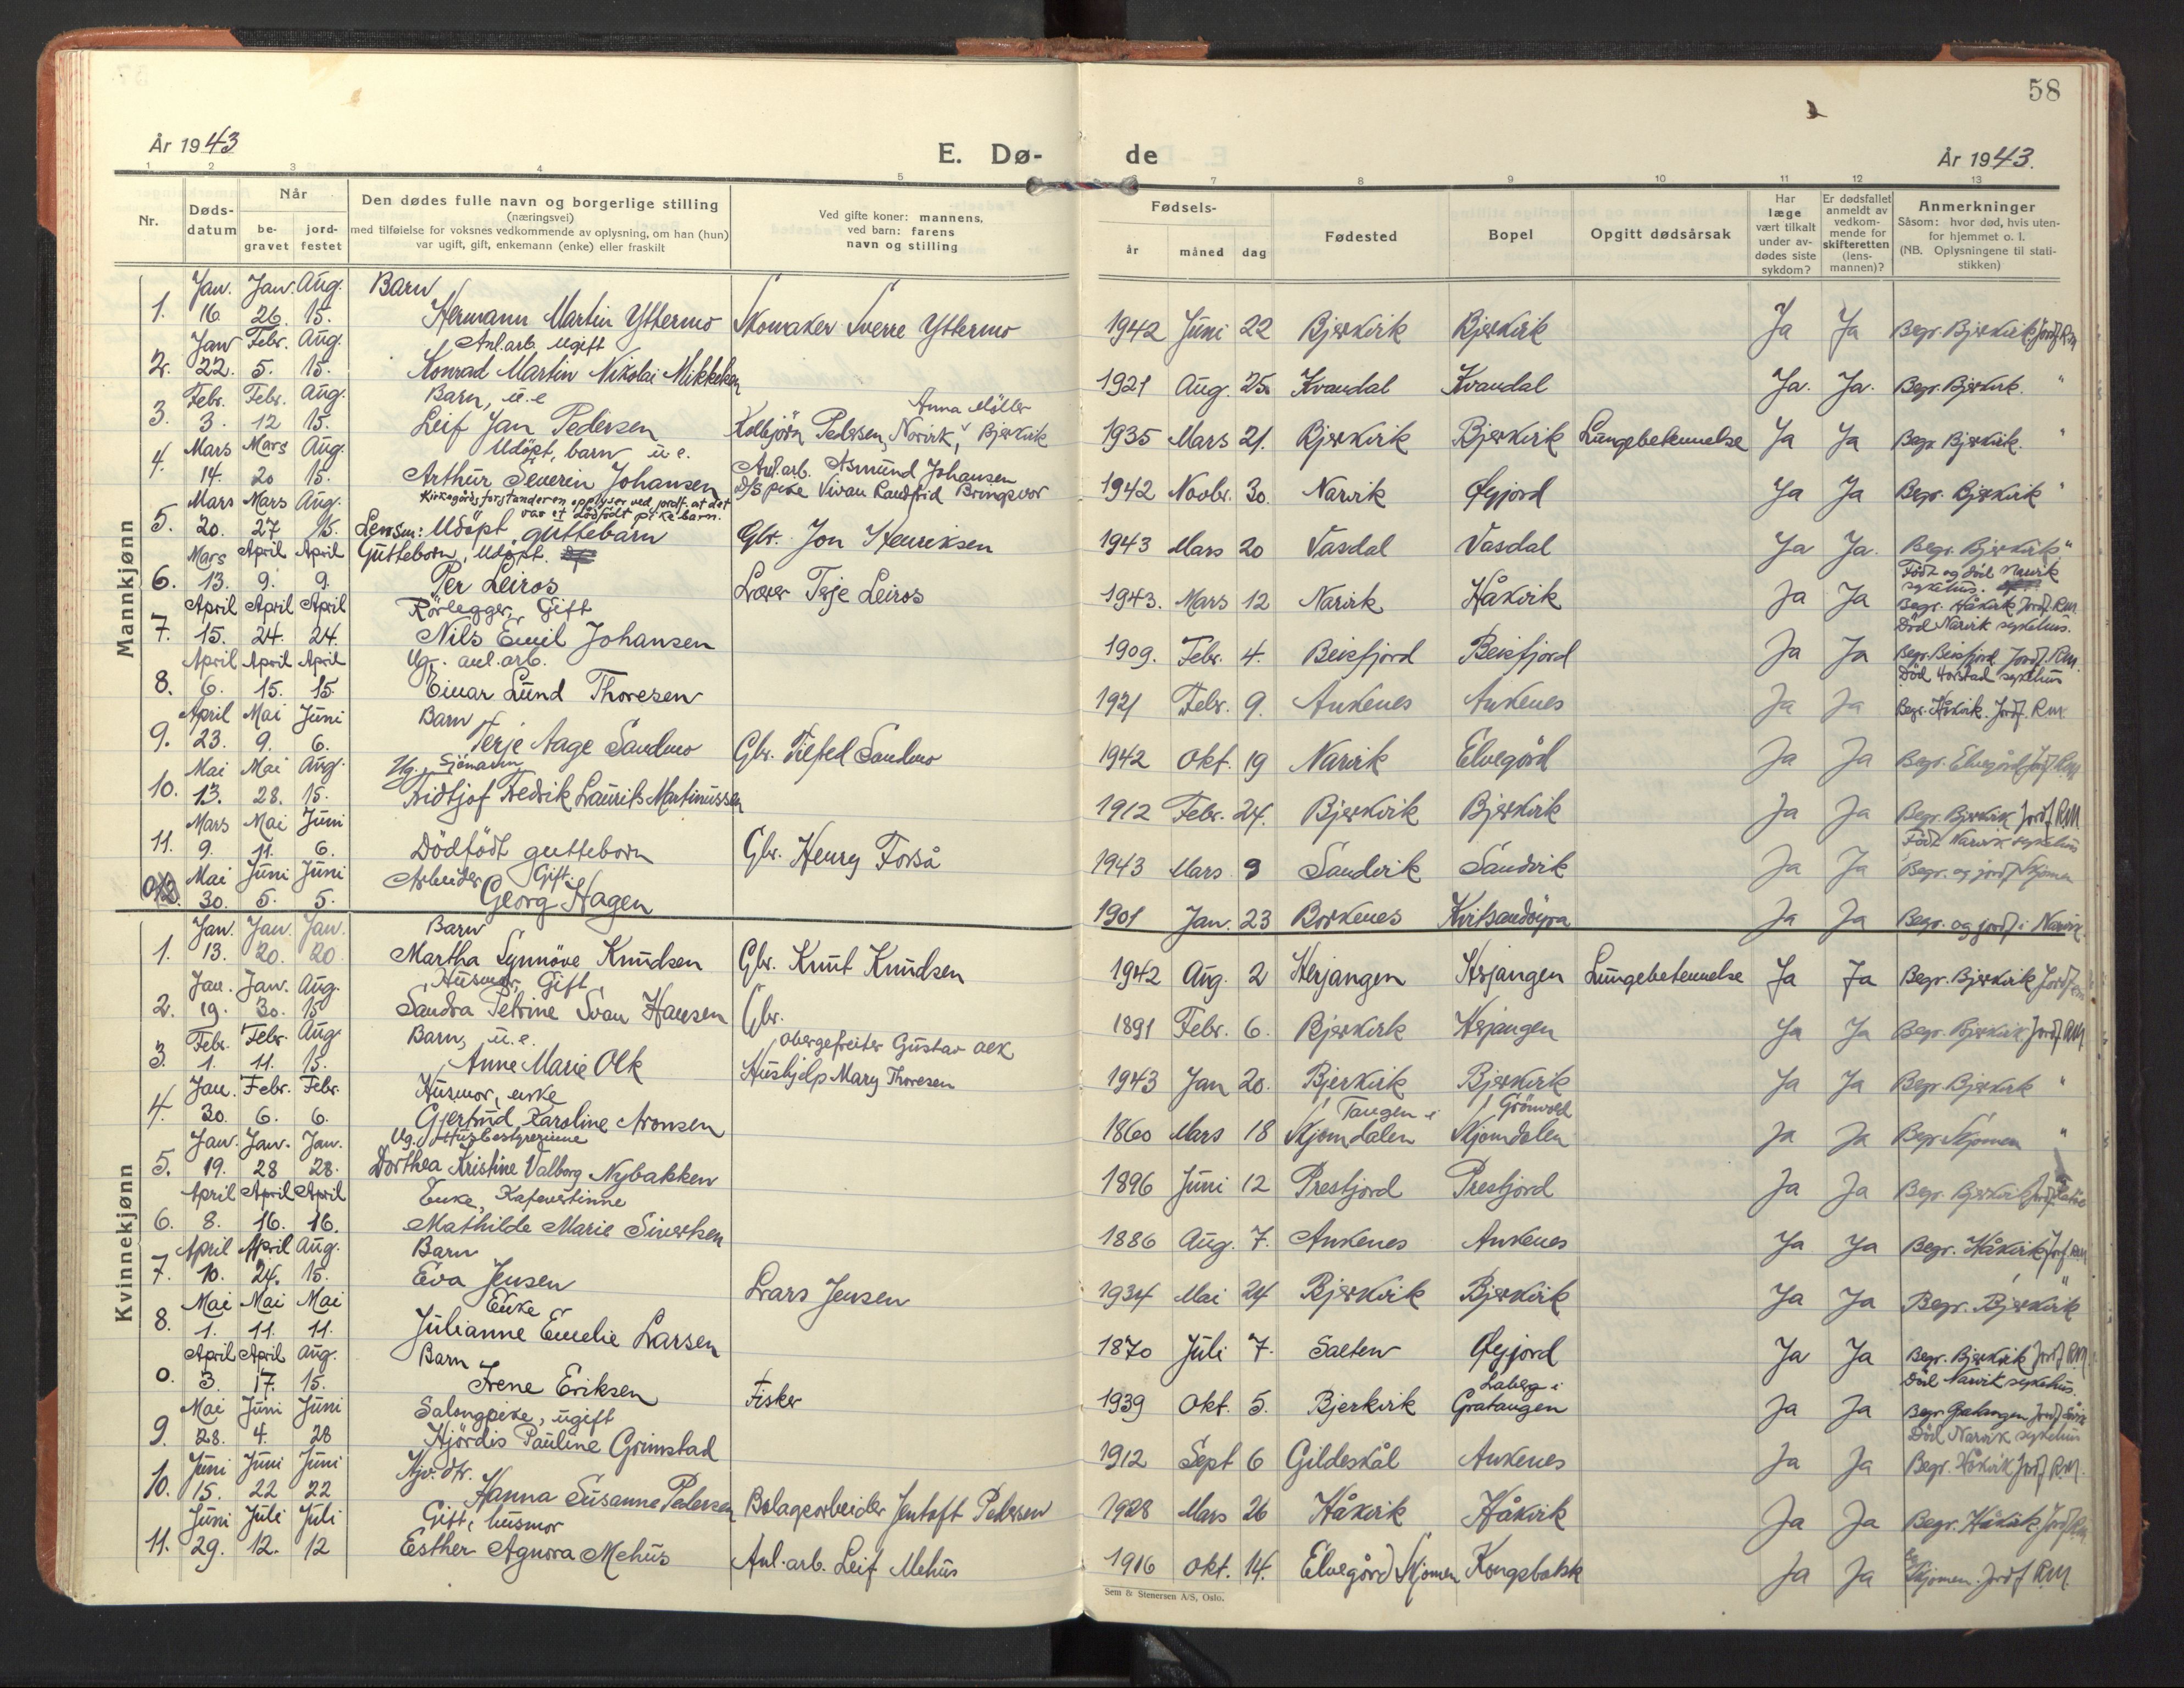 58
År 1943
E. Dø-
de
År 1943.
1 2 3 4 5 6 7 8 9 10 11 12 13
Nr.
Døds-
datum
Når
be-
gravet
jord-
festet
Den dødes fulle navn og borgerlige stilling
(næringsvei)
med tilføielse for voksnes vedkommende av oplysning, om han (hun)
var ugift, gift, enkemann (enke) eller fraskilt
Ved gifte koner: mannens,
ved barn: farens
navn og stilling
Fødsels-
år måned dag
Fødested
Bopel
Opgitt dødsårsak
Har
læge
vært tilkalt
under av-
dødes siste
sykdom?
Er dødsfallet
anmeldt av
vedkom-
mende for
skifteretten
(lens-
mannen)?
Anmerkninger
Såsom: hvor død, hvis uten-
for hjemmet o. l.
(NB. Oplysningene til stati-
stikken)
Mannkjønn
Jan. Jan. Aug. Barn
1. 16 26. 15. Hermann Martin Yttermo Skomaker Sverre Yttermo 1942 Juni 22 Bjerkvik Bjerkvik Ja Ja Begr. Bjerkvik, Jordf. RM
Jan Febr. Aug. Anl.arb. ugift
2. 22. 5. 15. Konrad Martin Nikolai Mikkelsen 1921 Aug. 25. Kvandal Kvandal Ja. Ja. Begr. Bjerkvik. "
Febr. Febr. Aug. Barn, u.e Anna Møller
3. 3. 12 15. Leif Jan Pedersen Kolbjörn Pedersen, Narvik, Bjerkvik 1935 Mars 21. Bjerkvik Bjerkvik Lungebetennelse Ja Ja Begr. Bjerkvik. "
Mars Mars Aug. Udöpt, barn u.e. Anl.arb. Asmund Johansen
4. 14. 20 15. Arthur Severin Johansen pike Vivan Randfrid Bringsvor 1942 Novbr. 30. Narvik Øyjord Ja Ja Begr. Bjerkvik "
Kirkegårdsforstanderen opplyser ved jordf. at det
var et dödfödt pikebarn.
Mars Mars Aug.
5. 20. 27 15. Lensm: Udöpt guttebarn Gbr. Jon Henriksen 1943 Mars 20 Vasdal Vasdal Ja Ja. Begr. Bjerkvik "
Mars April April Guttebarn, udöpt. Födt og död Narvik
sykehus.
6. 13. 9. 9. Per Leiros Lærer Terje Leiros 1943. Mars 12 Narvik Håkvik Ja Ja Begr. Håkvik Jordf. RM.
April April April Rörlegger, Gift Död Narvik sykehus.
7. 15. 24. 24. Nils Emil Johansen 1909. Febr. 4. Beisfjord Beisfjord Ja Ja Begr. Beisfjord Jordf. RM.
April April April Ug. anl.arb. Död Harstad sykehus
8. 6. 15. 15. Einar Lund Thoresen 1921 Febr. 9. Ankenes Ankenes Ja Ja Begr. Håkvik. Jordf. RM.
April Mai Juni Barn
9. 23. 9. 6. Terje Aage Sandmo Gbr. Sandmo 1942 Okt. 19 Narvik Elvegård Ja Ja Begr. Elvegård Jordf RM
Mai Mai Aug. Ug. Sjömann
10. 13. 28. 15. Fridtjof Fredrik Laurits Martinussen 1912 Febr. 24. Bjerkvik Bjerkvik Ja Ja Begr. Bjerkvik Jordf. RM
Mars Mai Juni Födt Narvik sykehus
11. 9. 11. 6. Dödfödt guttebarn Gbr. Henry Forså 1943 Mars 9 Sandvik Sandvik Ja Ja Begr. og jordf Skjomen
Mai Juni Juni Arbeider Gift.
12. 30. 5. 5. Georg Hagen 1901 Jan. 23 Borkenes Kvitsandöyra Ja Ja Begr. og jordf i Narvik.
Kvinnekjønn
Jan. Jan. Jan. Barn
1. 13. 20. 20 Martha Synnöve Knudsen Gbr. Knut Knudsen 1942 Aug. 2 Herjangen Herjangen Lungebetennelse Ja Ja Begr. Bjerkvik Jordf
Jan. Jan. Aug. Husmor, Gift
2. 19. 30. 15 Sandra Petrine Svan Hansen Gbr. 1891 Febr. 6. Bjerkvik Herjangen Ja Ja Begr. Bjerkvik Jordf RM
Febr. Febr. Aug Barn, u.e. Obergefreiter Gustav Oek
3. 1. 11. 15. Anne Marie Olk Hushjelp Mary Thoresen 1943 Jan 20. Bjerkvik Bjerkvik Ja Ja Begr. Bjerkvik "
Jan. Febr. Febr. Husmor, enke Tangen i Grönvold
4. 30. 6. 6. Gjertrud Karoline Aronsen 1860 Mars 18 Skjomdalen Skjomdalen Ja Ja Begr. Skjomen "
Jan. Jan. Jan. Ug. Husbestyrerinne
5. 19. 28 28. Dorthea Kristine Valborg Nybakken 1896 Juni 12 Prestjord Prestjord Ja Ja Begr. Bjerkvik Jordf
April April April Enke, Kafevertinne
6. 8. 16. 16. Mathilde Marie Sivertsen 1886 Aug. 7. Ankenes Ankenes Ja Ja Begr. Håkvik Jordf RM
April April Aug. Barn
7. 10. 24. 15. Eva Jensen Lars Jensen 1934 Mai 24 Bjerkvik Bjerkvik Ja Ja Begr. Bjerkvik "
Mai Mai Mai Enke
8. 1. 11. 11. Julianne Emelie Larsen 1870 Juli 7. Salten Øyjord Ja Ja Begr. Bjerkvik Jordf RM
April April Aug. Barn Laberg i Död Narvik sykehus.
0. 3. 17. 15. Irene Eriksen Fisker 1939 Okt. 5. Bjerkvik Gratangen Ja Ja Begr. Gratangen Jordf
Mai Juni Juni Salongpike, ugift Död Narvik sykehus
9. 28. 4. 28 Hjördis Pauline Grimstad 1912 Sept 6 Gildeskål Ankenes Ja Ja Begr. Håkvik Jordf RM.
Juni Juni Juni
10. 15. 22 22 Hanna Susanne Pedersen Jentoft Pedersen 1928 Mars 26 Håkvik Håkvik Ja Ja Begr. Håkvik. Jordf RM
Juni Juli Juli Gift, husmor
11. 29. 12. 12 Esther Agnora Mehus Anl.arb. Leif Mehus 1916 Okt. 14. Elvegård Skjomen Kongsbakk Ja Ja Skjomen. Jordf RM.
Sem & Stenersen A/S, Oslo.